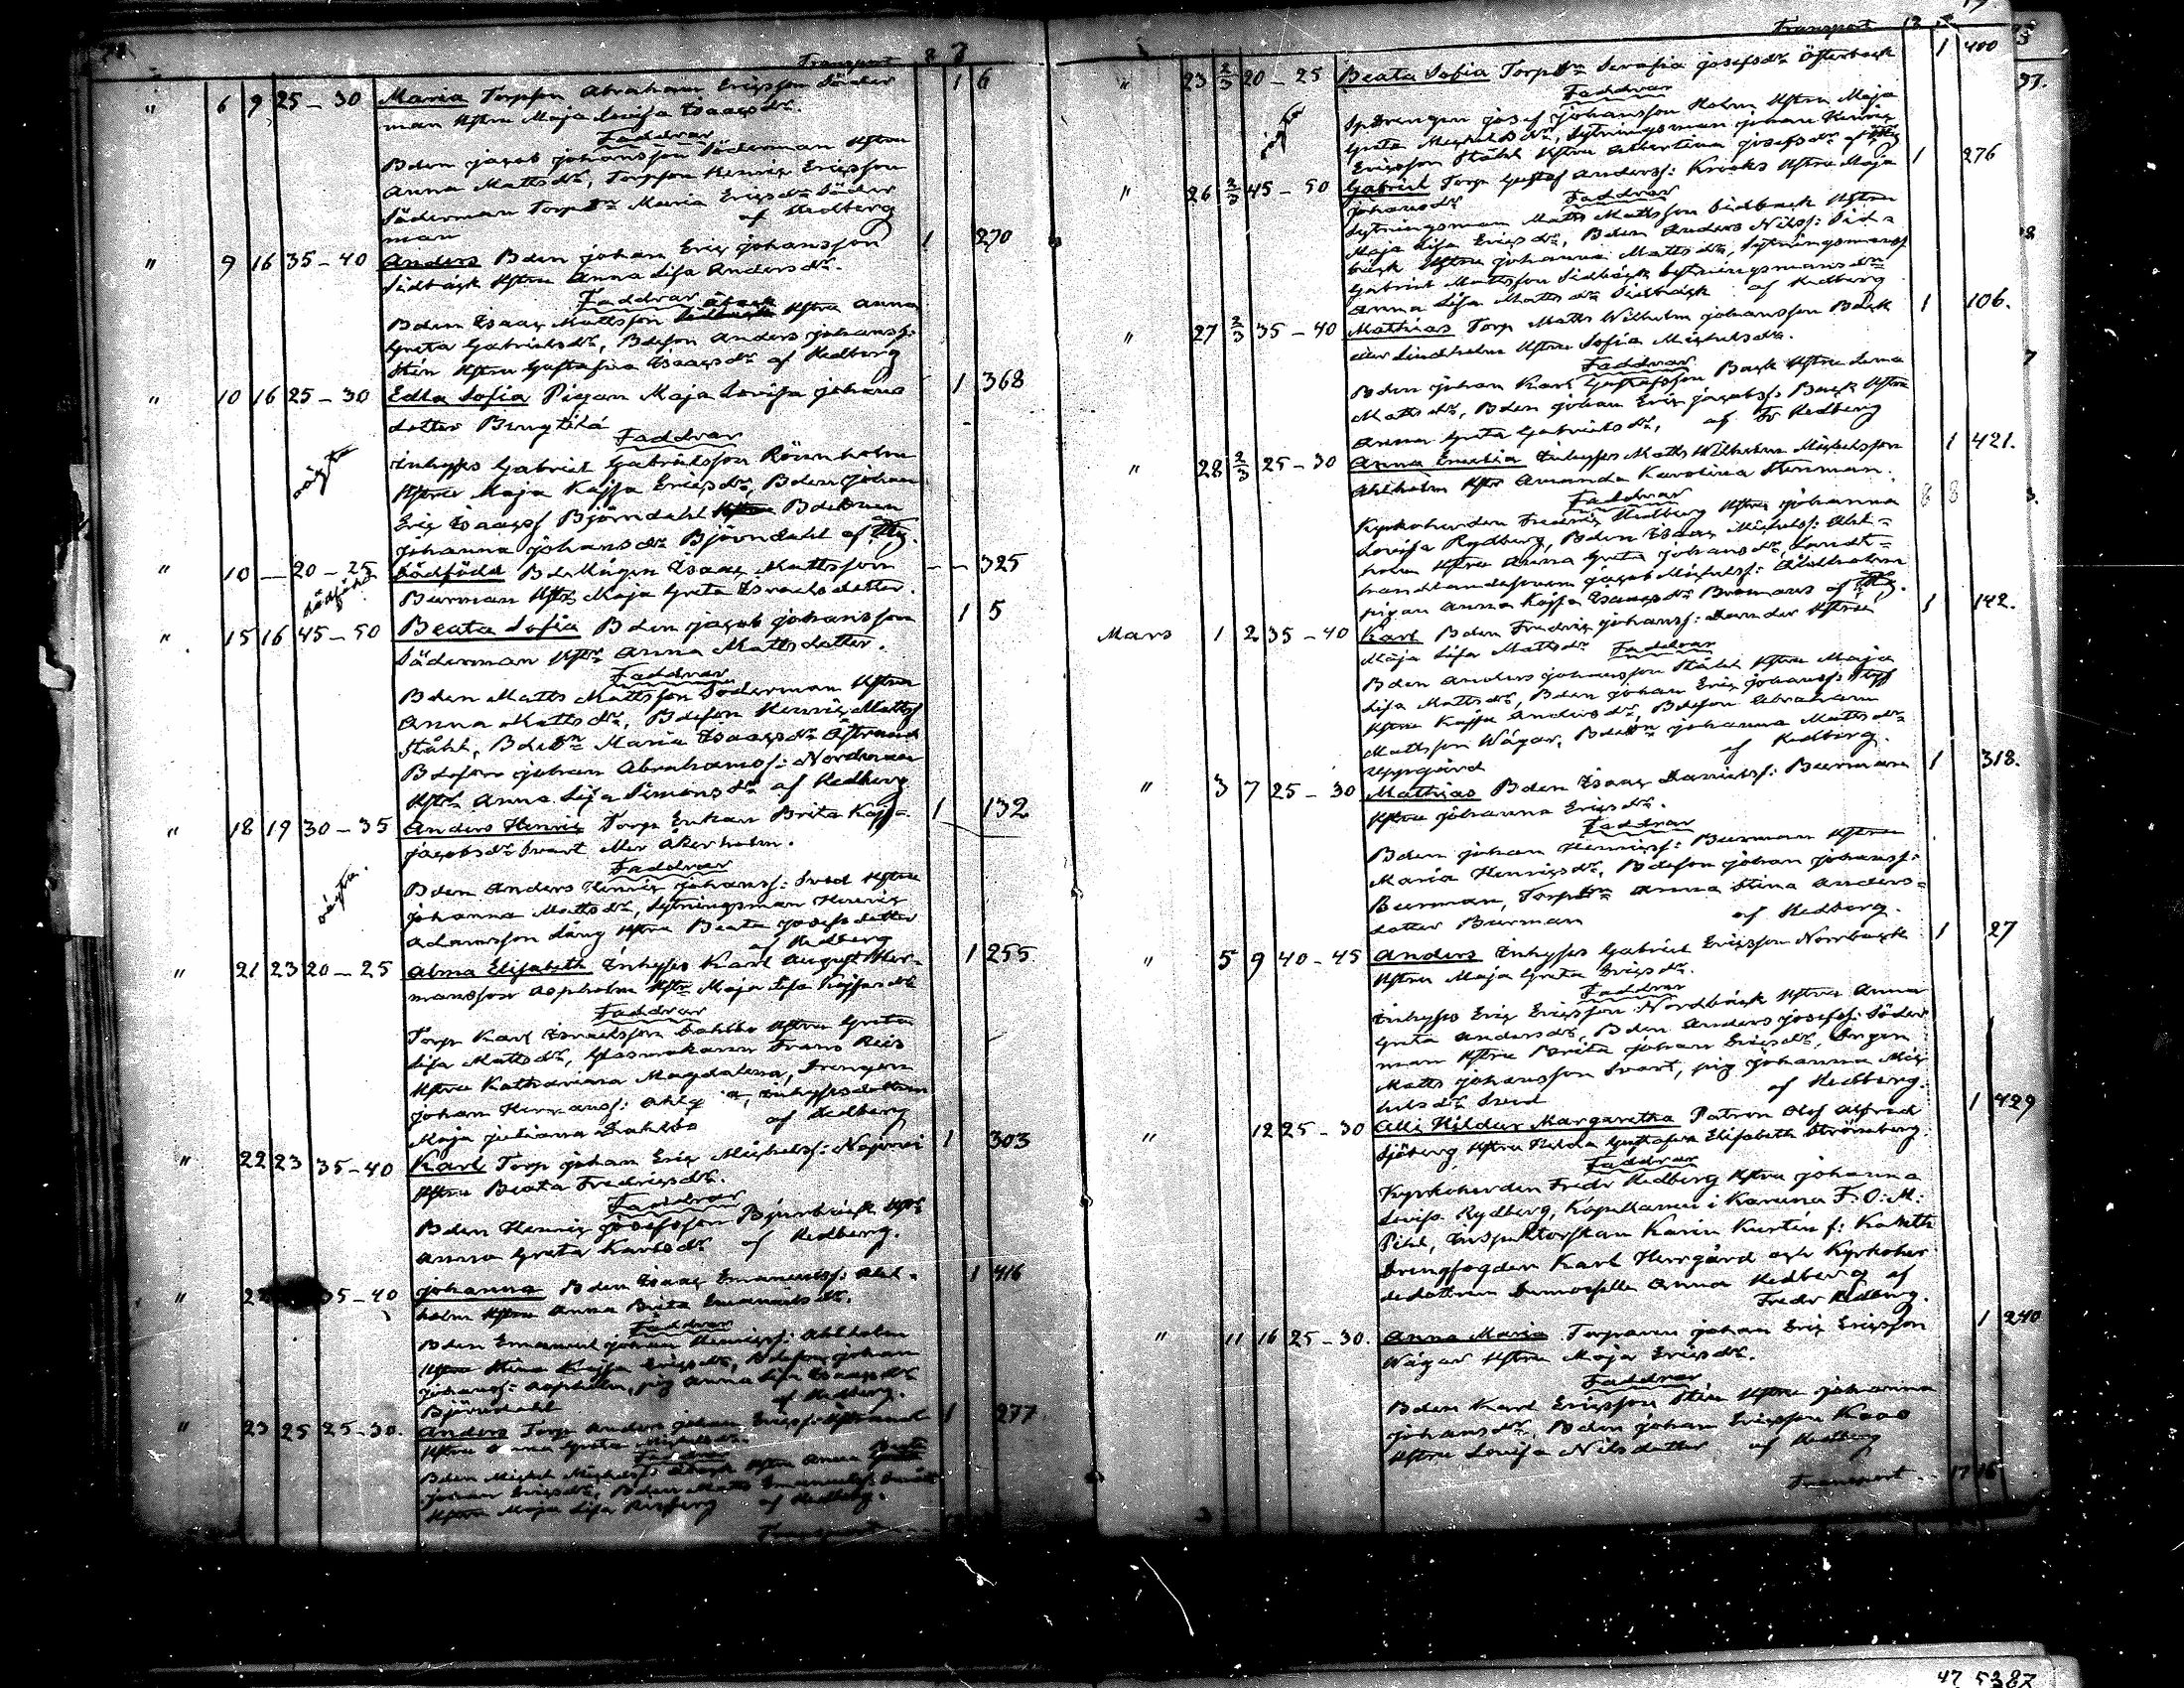 Transport 8 7
" 6 9 25-30 Maria Torpson Abraham Ericsson Söder 1 6
man Hstru Maja Lovisa Isaacsdr.
Faddrar
Bden Jacob Johansson Söderman Hstru
Anna Mattsdr, Torpson Henric Ericsson
Söderman Torpdr Maria Ericsdr Söder
man af Hedberg
" 9 16 35-40 Anders Bden Johan Eric Johansson 1 270
Sidbäck Hstru Anna Lisa Andersdr.
Faddrar
Bden Isaac Mattsson Hstru Anna
Greta Gabrielsdr, Bdeson Anders Johanss:
Sten Hstru Gustafva Isaacsdr af Hedberg
" 10 16 25-30 Edla Sofia Pigan Maja Lovisa Johans 1 368
dotter Bengtilä
oägta
Faddrar
Inhyses Gabriel Gabrielsson Rönnholm
Hstru Maja Kajsa Ericsdr, Bden Johan
Eric Isaacss Björndahl
Johanna Johansdr Björndahl af Hbg.
" 10 — 20-25 Dödfödd Isaac Mattsson — — 325
dödfödd
Burman Hstru Maja Greta Israelsdotter.
" 15 16 45-50 Beata Sofia Bden Jacob Johansson 1 5
Söderman Hstr Anna Mattsdotter.
Faddrar
Bden Matts Mattsson Söderman Hstru
Anna Mattsdr, Bdeson Henric Mattss
Ståhl, Bdedr Maria Isaacsdr Östrand
Bdeson Johan Abrahamss: Norderman
Hstru Anna Lisa Simonsdr af Hedberg
" 18 19 30-35 Anders Henric Torp Enkan Brita Kajs= 1 132
Jacobsdr Svart eller Åkerholm.
oägta.
Faddrar
Bden Anders Henric Johanss: Sved Hstru
Johanna Mattsdr, Sytningsman Henric
Adamsson Lång Hstru Beata Josefsdotter
af Hedberg
" 21 23 20-25 Alma Elisabeth Inhyses Karl August Her= 1 255
mansson Aspholm Hstru Maja Lisa Kajsasdr
Faddrar
Torp Karl Israelsson Dahlbo Hstru Greta
Lisa Mattsdr, Glasmakaren Frans Reis
Hstru Katharina Magdalena, Drengen
Johan Hermanss: inhysesdottern
Maja Juliana Dahlbo af Hedberg
" 22 23 35-40 Karl Torp Johan Eric Michelss: Najmi 1 303
Hstru Beata Fredricsdr.
Faddrar
Bden Henric Josefsson Björnbäck Hstr
Anna Greta Karlsdr af Hedberg.
" 35-40 Johanna Bden Isaac Emanuelss: Ahl= 1 416
holm Hstru Anna Brita Emanuelsdr.
Faddrar
Bden Emanuel Johan Henricss: Ahlholm
Hstru Stina Kajsa Ericsdr, Bdeson Johan
Johanss: Aspholm, pig Anna Lisa Isaacsdr
Björndahl af Hedberg.
" 23 25 25-30. Anders Torp Anders Johan Ericss: 1 277
Hstru Greta Michelsdr
Faddrar
Bden Michel Michelss: Hstru Anna
Ericsdr, Bden Matts Emanuelss:
Hstru Maja Lisa af Hedberg.
Transport
Transport 12
" 23 2/3 20-25 Beata Sofia Torpdr Serafia Josefsdr Österback 1 400
Faddrar
Josef Johansson Holm Hstru Maja
Greta Michelsdr, Sytningsman Johan Henric
Ericsson Ståhl Hstru Albertina Josefsdr af Hbg
" 26 2/3 45-50 Gabriel Torp Gustaf Anderss: Krooks Hstru Maja 1 276
Johansdr Faddrar
Sytningsman Matts Mattsson Sidback Hstru
Maja Lisa Ericsdr, Bden Anders Nilss: Sid=
bäck Hstru Johanna Mattsdr, Sytningsmanss.
Gabriel Mattsson Sidbäck Sytningsmansdr
Anna Lisa Mattsdr Sidbäck af Hedberg
" 27 2/3 35-40 Mathias Torp Matts Wilhelm Johansson Back 1 106.
eller Lindholm Hstru Sofia Michelsdr.
Faddrar
Bden Johan Karl Gustafsson Back Hstru Lena
Mattsdr, Bden Johan Eric Jacobss: Back Hstru
Anna Greta Gabrielsdr, af Fr Hedberg
" 28 2/3 25-30 Anna Emelia Inhyses Matts Wilhelm Michelsson 1 421.
Ahlholm Hstr Amanda Karolina Stenman.
Faddrar 8 8
Kyrkoherden Fredric Hedberg Hstru Johanna
Lovisa Rydberg, Bden Isaac Michelss: Ahl=
holm Hstru Anna Greta Johansdr, Landt=
handlandesonen Jacob Michelss: Ahlholm
pigan Anna Kajsa Isaacsdr Bromans af Hbg.
Mars 1 2 35-40 Karl Bden Fredric Johanss: Dunder Hstru 1 142.
Maja Lisa Mattsdr Faddrar
Bden Anders Johansson Ståhl Hstru Maja
Lisa Mattsdr, Bden Johan Eric Johanss:
Hstru Kajsa Andersdr, Bdeson Abraham
Mattsson Wågar, Bdedr Johanna Mattsdr
Uppgård af Hedberg.
" 3 7 25-30 Mathias Bden Isaac Danielss: Burman 1 318.
Hstru Johanna Ericsdr.
Faddrar
Bden Johan Henricss: Burman Hstru
Maria Henricsdr, Bdeson Johan Johanss:
Burman, Torpdr Anna Stina Anders=
dotter Burman af Hedberg.
" 5 9 40-45 Anders Inhyses Gabriel Ericsson Norrback 1 27
Hstru Maja Greta Ericsdr.
Faddrar
Inhyses Eric Ericsson Nordbäck Hstru Anna
Greta Andersdr, Bden Anders Josefss: Söder
man Hstru Brita Johan Ericsdr, Drgen
Matts Johansson Svart, pig Johanna Mic
helsdr Sved af Hedberg.
" 12 25-30 Alli Hildur Margaretha Patron Olof Alfred 1 429
Sjöberg Hstru Hilda Gustafva Elisabeth Strömberg.
Faddrar
Kyrkoherden Fredr Hedberg Hstru Johanna
Lovisa Rydberg, Kapellanen i Karuna F. O. M.
Pihl, Inspektorskan Karin Kurtén f: Kahelti
Drengfogden Karl Herrgård och Kyrkoher=
dedottren Demoiselle Anna Hedberg af
Fredr Hedberg.
" 11 16 25-30. Anna Maria Torparen Johan Eric Ericsson 1 240
Wågar Hstru Maja Ericsdr.
Faddrar
Bden Karl Ericsson Sten Hstru Johanna
Johansdr, Bden Johan Ericsson Kaas
Hstru Lovisa Nilsdotter af Hedberg
Transport 17 16
47 5387